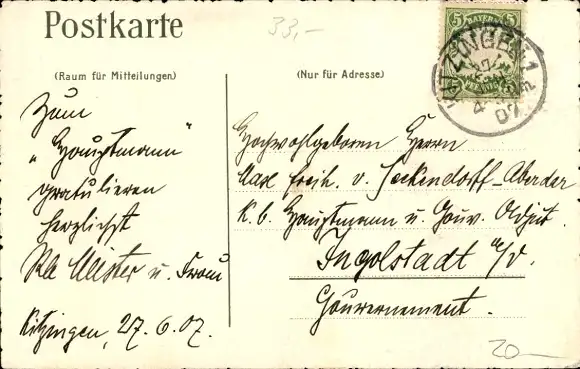 Postkarte
33,-
5 BAYERN 5
PFENNIG
KITZINGEN 1
07
(Raum für Mitteilungen)
(Nur für Adresse)
Zum
„Hauptmann“
gratulieren
herzlichst
Meister u. Frau
Kitzingen, 27.6.07.
Hochwohlgeboren Herrn
Max Freih. v. Seckendorff-Aberdar
K. b. Hauptmann u. Gouv. Adjut.
Ingolstadt a/D.
Gouvernement.
20-